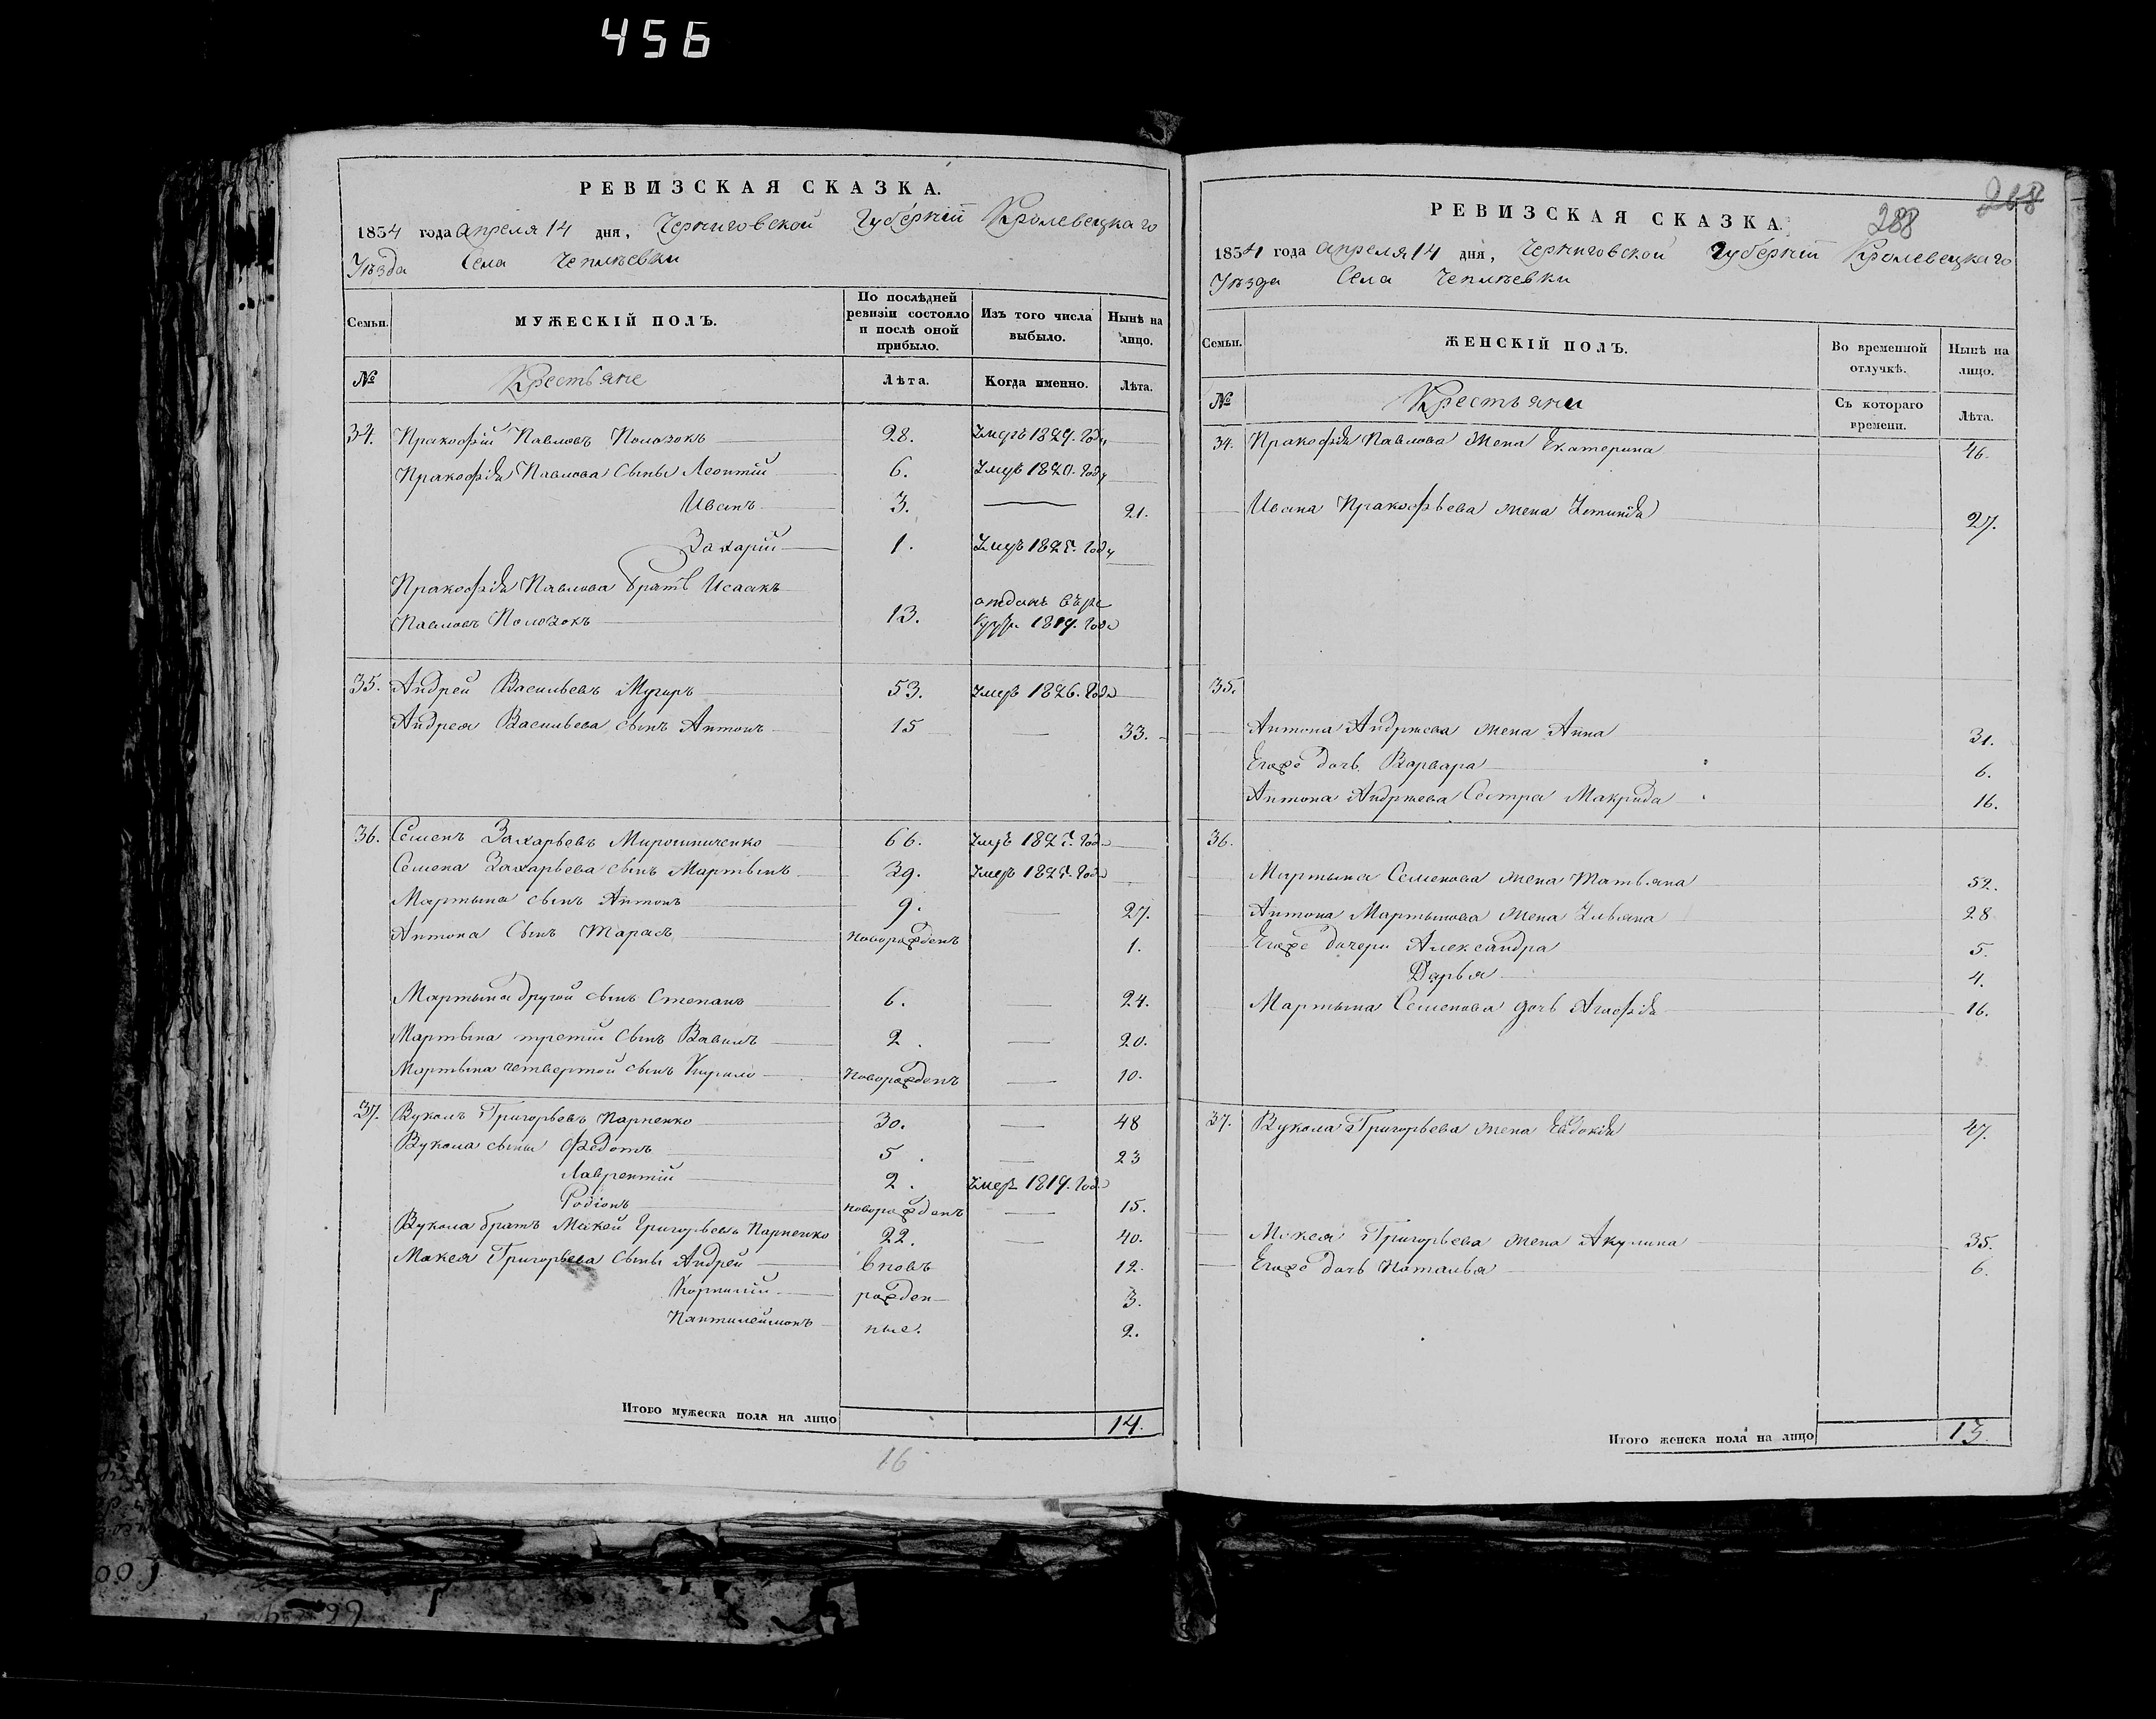 456
РЕВИЗСКАЯ СКАЗКА.
1834 года апреля 14 дня, Черниговской Губерніи Кролевецкаго
Уѣзда Села Чеплѣевки
Семьи.
МУЖЕСКІЙ ПОЛЪ.
По послѣдней ревизіи состояло и послѣ оной прибыло.
Изъ того числа выбыло.
Нынѣ на лицо.
№ Крестьяне Лѣта. Когда именно. Лѣта.
34. Пракофій Павловъ Полозокъ 28.
Пракофія Павлова сыны Леонтій 6.
Иванъ 3. 21.
Захарій 1.
Пракофія Павлова братъ Исаакъ
Павловъ Полозокъ 13. отданъ въ 1819. года
35. Андрей Васильевъ 53. умеръ 1826. года
Андрея Васильева сынъ Антонъ 15 33.
36. Семенъ Захарьевъ Мирошниченко 66.
Семена Захарьева сынъ Мартынъ 39.
Мартына сынъ Антонъ 9. 27.
Антона сынъ Тарасъ новорожденъ 1.
Мартына другой сынъ Степанъ 6. 24.
Мартына третій сынъ Вавилъ 2. 20.
Мартына четвертой сынъ Кирило новорожденъ 10.
37. Вуколъ Григорьевъ Парпенко 30. 48
Вукола сыны Федотъ 5. 23
Лаврентій 2. умеръ 1819. года
Родіонъ новорожденъ 15.
Вукола братъ Мокей Григорьевъ Парпенко 22. 40.
Мокея Григорьева сыны Андрей вновь 12.
Корнилій рожден 3.
Пантилеймонъ ные. 2.
Итого мужеска пола на лицо 14.
16
268
288
РЕВИЗСКАЯ СКАЗКА.
1834 года апреля 14 дня, Черниговской Губерніи Кролевецкаго
Уѣзда Села Чеплѣевки
Семьи.
ЖЕНСКІЙ ПОЛЪ.
Во временной отлучкѣ.
Нынѣ на лицо.
№ Крестьяни Съ котораго времени. Лѣта.
34. Пракофія Павлова жена Екатерина 46.
Ивана Пракофьева жена 27.
35.
Антона Андрѣева жена Анна 31.
Егоже дочь Варвара 6.
Антона Андрѣева сестра Макрида 16.
36.
Мартына Семенова жена Татьяна 52.
Антона Мартынова жена Ульяна 28
Егоже дочери Александра 5.
Дарья 4.
Мартына Семенова дочь Агафія 16.
37. Вукола Григорьева жена Евдокія 47.
Мокея Григорьева жена Акулина 35.
Егоже дочь Наталья 6.
Итого женска пола на лицо 13.